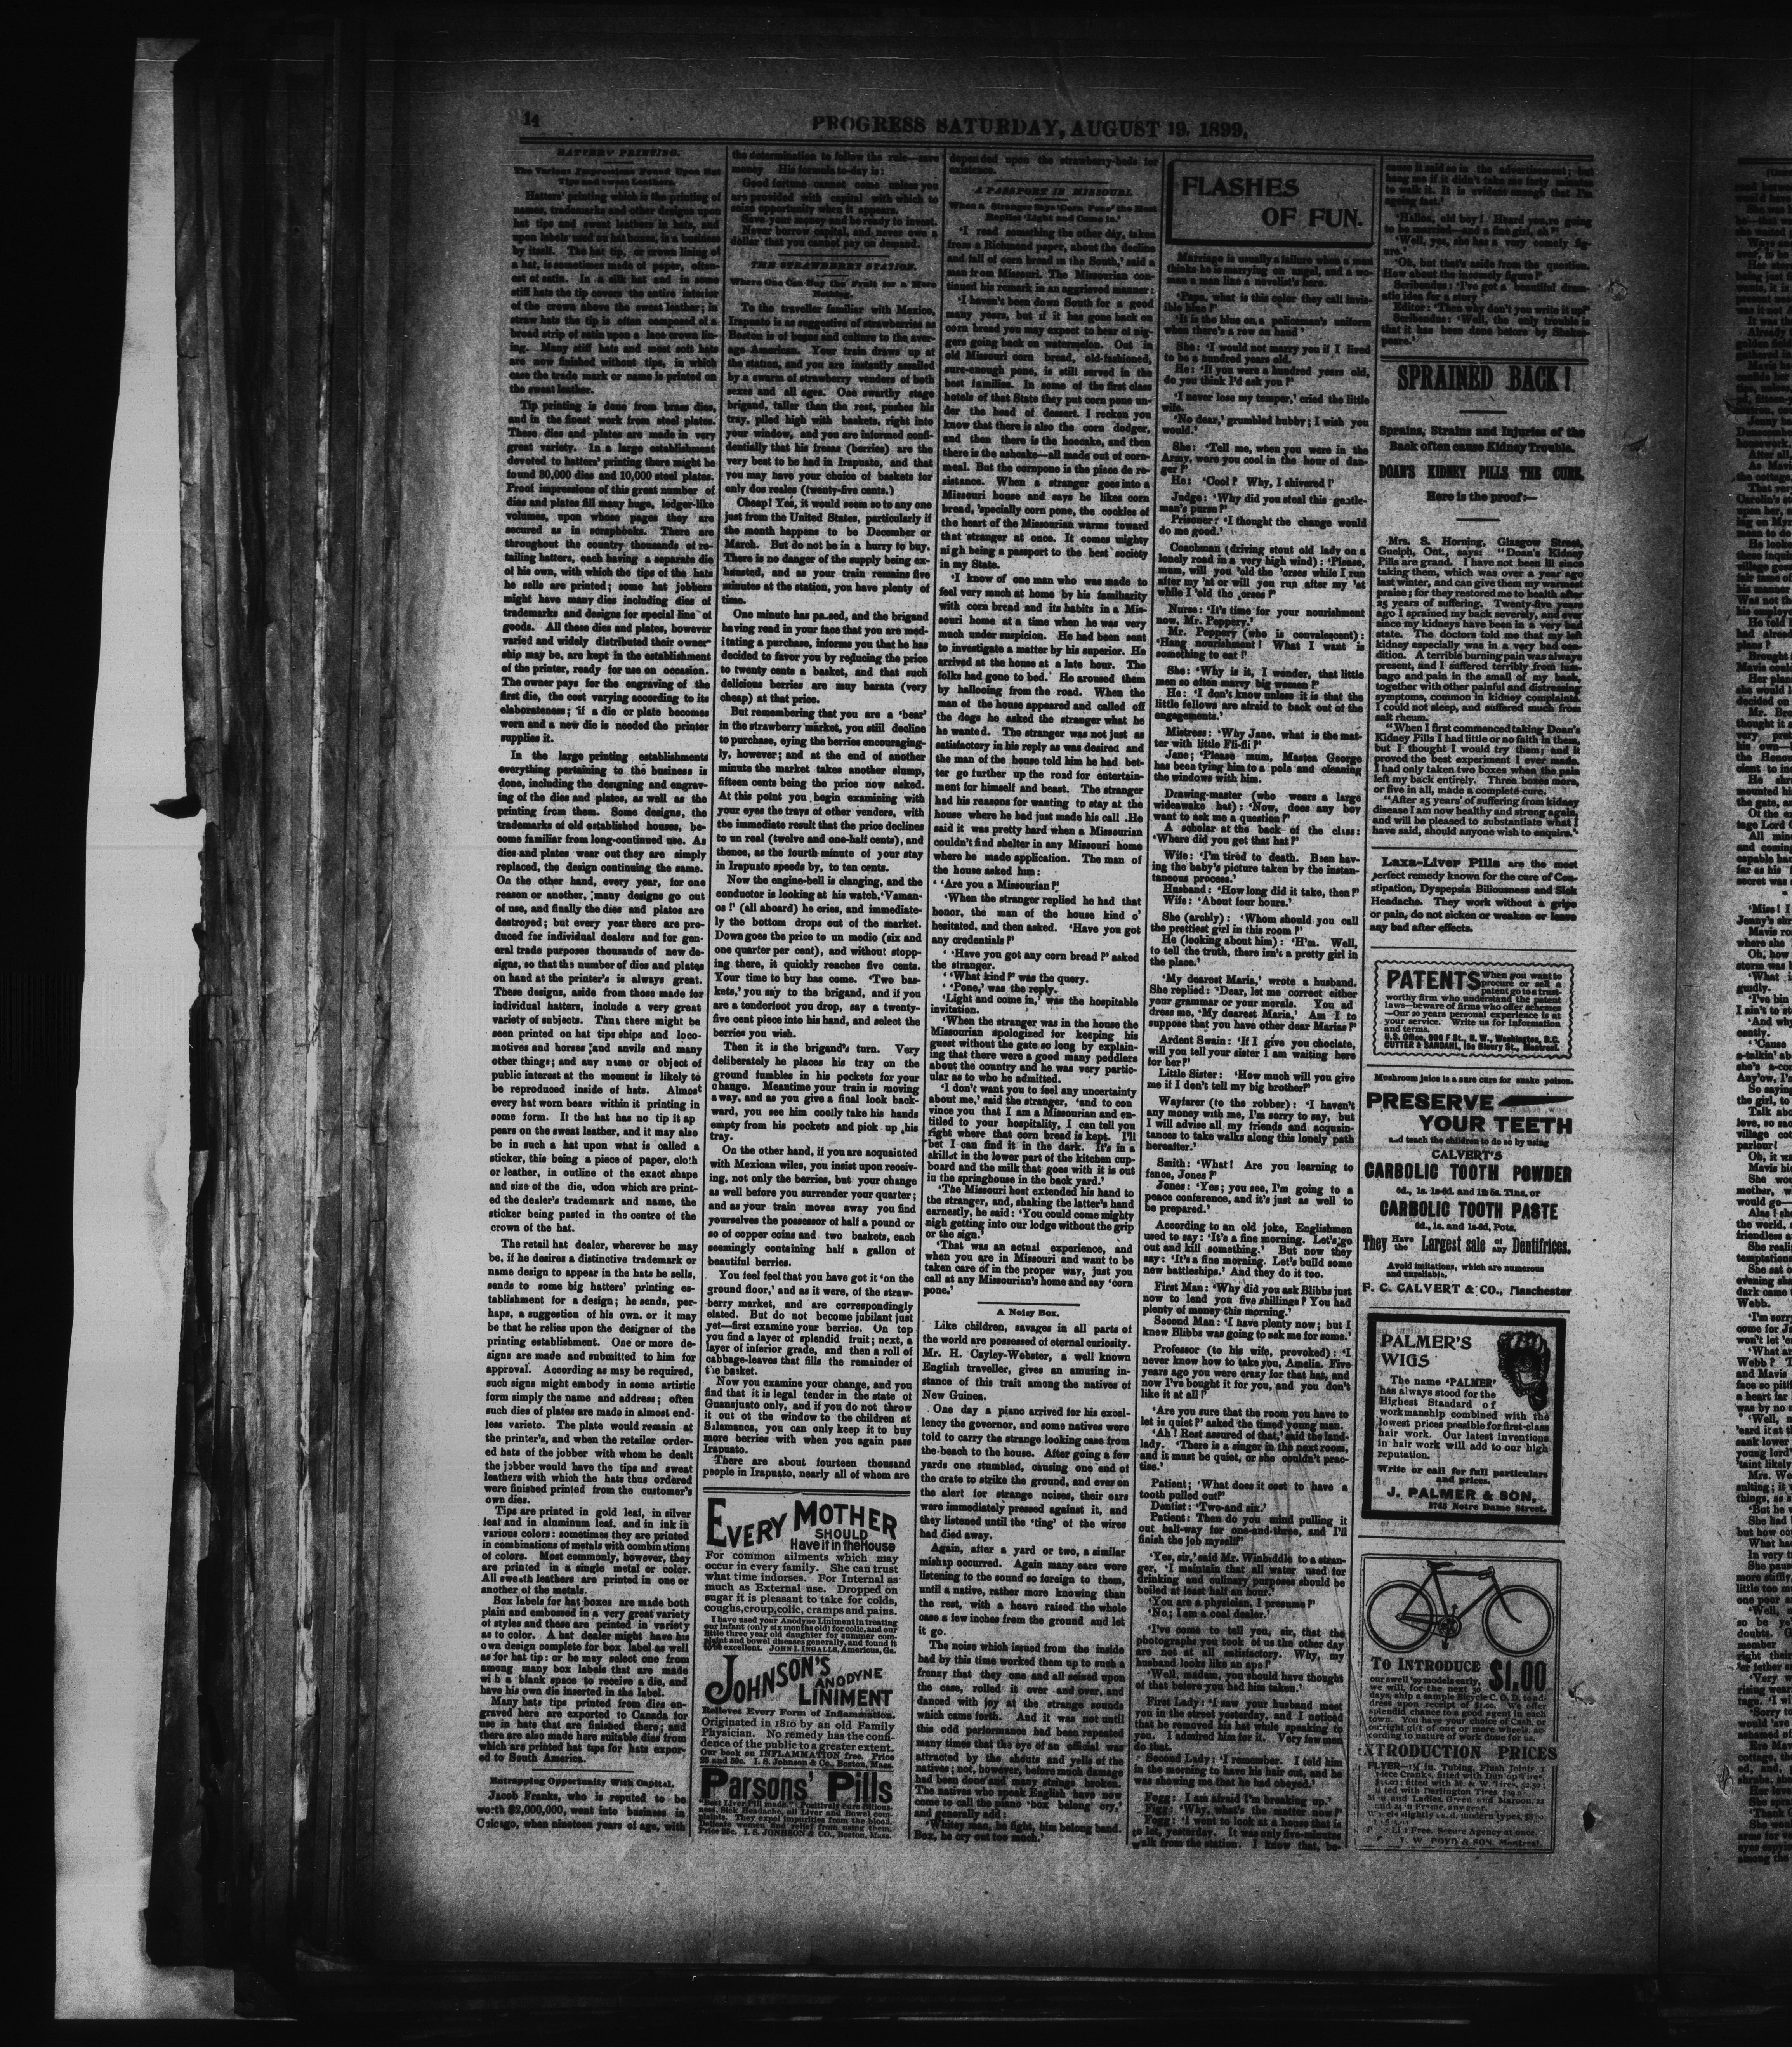 14
PROGRESS SATURDAY, AUGUST 19, 1899.
HATTERS' PRINTING.
The Various Impressions Found Upon Hat
Tips and Sweat Leathers.
Hatters' printing which is the printing of
names, trademarks and other designs upon
hat tips and sweat leathers in hats, and
upon labels used on hat boxes, is a business
by itself. The hat tip, or crown lining of
a hat, is sometimes made of paper, often-
est of satin. In a silk hat and in some
stiff hats the tip covers the entire interior
of the crown above the sweat leather; in
straw hats the tip is often composed of a
broad strip of satin upon a lace crown lin-
ing. Many stiff hats and most soft hats
are now finished without tips, in which
case the trade mark or name is printed on
the sweat leather.
Tip printing is done from brass dies,
and in the finest work from steel plates.
These dies and plates are made in very
great variety. In a large establishment
devoted to hatters' printing there might be
found 30,000 dies and 10,000 steel plates.
Proof impressions of this great number of
dies and plates fill many huge, ledger-like
volumes, upon whose pages they are
secured as in scrapbooks. There are
throughout the country thousands of re-
tailing hatters, each having a separate die
of his own, with which the tips of the hats
he sells are printed; some hat jobbers
might have many dies including dies of
trademarks and designs for special line of
goods. All these dies and plates, however
varied and widely distributed their owner
ship may be, are kept in the establishment
of the printer, ready for use on occasion.
The owner pays for the engraving of the
first die, the cost varying according to its
elaborateness; if a die or plate becomes
worn and a new die is needed the printer
supplies it.
In the large printing establishments
everything pertaining to the business is
done, including the designing and engrav-
ing of the dies and plates, as well as the
printing from them. Some designs, the
trademarks of old established houses, be-
come familiar from long-continued use. As
dies and plates wear out they are simply
replaced, the design continuing the same.
On the other hand, every year, for one
reason or another, many designs go out
of use, and finally the dies and plates are
destroyed; but every year there are pro-
duced for individual dealers and for gen-
eral trade purposes thousands of new de-
signs, so that the number of dies and plates
on hand at the printer's is always great.
These designs, aside from those made for
individual hatters, include a very great
variety of subjects. Thus there might be
seen printed on hat tips ships and loco-
motives and horses and anvils and many
other things; and any name or object of
public interest at the moment is likely to
be reproduced inside of hats. Almost
every hat worn bears within it printing in
some form. It the hat has no tip it ap
pears on the sweat leather, and it may also
be in such a hat upon what is called a
sticker, this being a piece of paper, cloth
or leather, in outline of the exact shape
and size of the die, udon which are print-
ed the dealer's trademark and name, the
sticker being pasted in the centre of the
crown of the hat.
The retail hat dealer, wherever he may
be, if he desires a distinctive trademark or
name design to appear in the hats he sells,
sends to some big hatters' printing es-
tablishment for a design; he sends, per-
haps, a suggestion of his own, or it may
be that he relies upon the designer of the
printing establishment. One or more de-
signs are made and submitted to him for
approval. According as may be required,
such signs might embody in some artistic
form simply the name and address; often
such dies of plates are made in almost end-
less varieto. The plate would remain at
the printer's, and when the retailer order-
ed hats of the jobber with whom he dealt
the jobber would have the tips and sweat
leathers with which the hats thus ordered
were finished printed from the customer's
own dies.
Tips are printed in gold leaf, in silver
leaf and in aluminum leaf, and in ink in
various colors: sometimes they are printed
in combinations of metals with combinations
of colors. Most commonly, however, they
are printed in a single metal or color.
All sweath leathers are printed in one or
another of the metals.
Box labels for hat boxes are made both
plain and embossed in a very great variety
of styles and these are printed in variety
as to color. A hat dealer might have his
own design complete for box label as well
as for hat tip: or he may select one from
among many box labels that are made
with a blank space to receive a die, and
have his own die inserted in the label.
Many hats tips printed from dies en-
graved here are exported to Canada for
use in hats that are finished there; and
there are also made here suitable dies from
which are printed hat tips for hats expor-
ed to South America.
Entrapping Opportunity With Capital.
Jacob Franks, who is reputed to be
worth $2,000,000, went into business in
Chicago, when nineteen years of age, with
the determination to follow the rule—save
money His formula to-day is:
Good fortune cannot come unless you
are provided with capital with which to
seize opportunity when it appears.
Save your money and be ready to invest.
Never borrow capital, and never owe a
dollar that you cannot pay on demand.
THE STRAWBERRY STATION.
Where One Can Buy the Fruit for a Mere
Nothing.
To the traveller familiar with Mexico,
Irapuato is as suggestive of strawberries as
Boston is of beans and culture to the aver-
age American. Your train draws up at
the station, and you are instantly assailed
by a swarm of strawberry venders of both
sexes and all ages. One swarthy stage
brigand, taller than the rest, pushes his
tray, piled high with baskets, right into
your window, and you are informed confi-
dentially that his fresas (berries) are the
very best to be had in Irapuato, and that
you may have your choice of baskets for
only dos reales (twenty-five cents.)
Cheap! Yes, it would seem so to any one
just from the United States, particularly if
the month happens to be December or
March. But do not be in a hurry to buy.
There is no danger of the supply being ex-
hausted, and as your train remains five
minutes at the station, you have plenty of
time.
One minute has passed, and the brigand
having read in your face that you are med-
itating a purchase, informs you that he has
decided to favor you by reducing the price
to twenty cents a basket, and that such
delicious berries are muy barata (very
cheap) at that price.
But remembering that you are a 'bear'
in the strawberry market, you still decline
to purchase, eying the berries encouraging-
ly, however; and at the end of another
minute the market takes another slump,
fifteen cents being the price now asked.
At this point you begin examining with
your eyes the trays of other venders, with
the immediate result that the price declines
to un real (twelve and one-half cents), and
thence, as the fourth minute of your stay
in Irapuato speeds by, to ten cents.
Now the engine-bell is clanging, and the
conductor is looking at his watch, 'Vaman-
os!' (all aboard) he cries, and immediate-
ly the bottom drops out of the market.
Down goes the price to un medio (six and
one quarter per cent), and without stopp-
ing there, it quickly reaches five cents.
Your time to buy has come. 'Two bas-
kets,' you say to the brigand, and if you
are a tenderfoot you drop, say a twenty-
five cent piece into his hand, and select the
berries you wish.
Then it is the brigand's turn. Very
deliberately he places his tray on the
ground fumbles in his pockets for your
change. Meantime your train is moving
away, and as you give a final look back-
ward, you see him coolly take his hands
empty from his pockets and pick up his
tray.
On the other hand, if you are acquainted
with Mexican wiles, you insist upon receiv-
ing, not only the berries, but your change
as well before you surrender your quarter;
and as your train moves away you find
yourselves the possessor of half a pound or
so of copper coins and two baskets, each
seemingly containing half a gallon of
beautiful berries.
You feel feel that you have got it 'on the
ground floor,' and as it were, of the straw-
berry market, and are correspondingly
elated. But do not become jubilant just
yet—first examine your berries. On top
you find a layer of splendid fruit; next, a
layer of inferior grade, and then a roll of
cabbage-leaves that fills the remainder of
the basket.
Now you examine your change, and you
find that it is legal tender in the state of
Guanajuato only, and if you do not throw
it out of the window to the children at
Salamanca, you can only keep it to buy
more berries with when you again pass
Irapuato.
There are about fourteen thousand
people in Irapuato, nearly all of whom are
EVERY MOTHER
SHOULD
Have it in the House
For common ailments which may
occur in every family. She can trust
what time indorses. For Internal as
much as External use. Dropped on
sugar it is pleasant to take for colds,
coughs, croup, colic, cramps and pains.
I have used your Anodyne Liniment in treating
our infant (only six months old) for colic, and our
little three year old daughter for summer com-
plaint and bowel diseases generally, and found it
to be excellent. JOHN I. INGALLS, Americus, Ga.
JOHNSON'S
ANODYNE
LINIMENT
Relieves Every Form of Inflammation.
Originated in 1810 by an old Family
Physician. No remedy has the confi-
dence of the public to a greater extent.
Our book on INFLAMMATION free. Price
25 and 50c. I. S. Johnson & Co., Boston, Mass.
Parsons' Pills
"Best Liver Pill made." Positively cure Bilious-
ness, Sick Headache, all Liver and Bowel com-
plaints. They expel impurities from the blood.
Delicate women find relief from using them.
Price 25c. I. S. JOHNSON & CO., Boston, Mass.
depended upon the strawberry-beds for
existence.
A PASSPORT IN MISSOURI.
When a Stranger Says 'Corn Pone' the Host
Replies 'Light and Come In.'
'I read something the other day, taken
from a Richmond paper, about the decline
and fall of corn bread in the South,' said a
man from Missouri. The Missourian con-
tinued his remark in an aggrieved manner:
'I haven't been down South for a good
many years, but if it has gone back on
corn bread you may expect to hear of nig-
gers going back on watermelon. Out in
old Missouri corn bread, old-fashioned,
sure-enough pone, is still served in the
best families. In some of the first class
hotels of that State they put corn pone un-
der the head of dessert. I recken you
know that there is also the corn dodger,
and then there is the hoecake, and then
there is the ashcake—all made out of corn-
meal. But the cornpone is the piece de re-
sistance. When a stranger goes into a
Missouri house and says he likes corn
bread, 'specially corn pone, the cockles of
the heart of the Missourian warms toward
that stranger at once. It comes mighty
nigh being a passport to the best society
in my State.
'I know of one man who was made to
feel very much at home by his familiarity
with corn bread and its habits in a Mis-
souri home at a time when he was very
much under suspicion. He had been sent
to investigate a matter by his superior. He
arrived at the house at a late hour. The
folks had gone to bed. He aroused them
by hallooing from the road. When the
man of the house appeared and called off
the dogs he asked the stranger what he
he wanted. The stranger was not just as
satisfactory in his reply as was desired and
the man of the house told him he had bet-
ter go further up the road for entertain-
ment for himself and beast. The stranger
had his reasons for wanting to stay at the
house where he had just made his call .He
said it was pretty hard when a Missourian
couldn't find shelter in any Missouri home
where he made application. The man of
the house asked him:
' 'Are you a Missourian?'
'When the stranger replied he had that
honor, the man of the house kind o'
hesitated, and then asked. 'Have you got
any credentials?'
' 'Have you got any corn bread?' asked
the stranger.
' 'What kind?' was the query.
' 'Pone,' was the reply.
'Light and come in,' was the hospitable
invitation.
'When the stranger was in the house the
Missourian apologized for keeping his
guest without the gate so long by explain-
ing that there were a good many peddlers
about the country and he was very partic-
ular as to who he admitted.
'I don't want you to feel any uncertainty
about me,' said the stranger, 'and to con
vince you that I am a Missourian and en-
titled to your hospitality, I can tell you
right where that corn bread is kept. I'll
bet I can find it in the dark. It's in a
skillet in the lower part of the kitchen cup-
board and the milk that goes with it is out
in the springhouse in the back yard.'
'The Missouri host extended his hand to
the stranger, and, shaking the latter's hand
earnestly, he said: 'You could come mighty
nigh getting into our lodge without the grip
or the sign.'
'That was an actual experience, and
when you are in Missouri and want to be
taken care of in the proper way, just you
call at any Missourian's home and say 'corn
pone.'
A Noisy Box.
Like children, savages in all parts of
the world are possessed of eternal curiosity.
Mr. H. Cayley-Webster, a well known
English traveller, gives an amusing in-
stance of this trait among the natives of
New Guinea.
One day a piano arrived for his excel-
lency the governor, and some natives were
told to carry the strange looking case from
the-beach to the house. After going a few
yards one stumbled, causing one end of
the crate to strike the ground, and ever on
the alert for strange noises, their ears
were immediately pressed against it, and
they listened until the 'ting' of the wires
had died away.
Again, after a yard or two, a similar
mishap occurred. Again many ears were
listening to the sound so foreign to them,
until a native, rather more knowing than
the rest, with a heave raised the whole
case a few inches from the ground and let
it go.
The noise which issued from the inside
had by this time worked them up to such a
frenzy that they one and all seized upon
the case, rolled it over and over, and
danced with joy at the strange sounds
which came forth. And it was not until
this odd performance had been repeated
many times that the eye of an official was
attracted by the shouts and yells of the
natives; not, however, before much damage
had been done and many strings broken.
The natives who speak English have now
come to call the piano 'box belong cry,'
and generally add:
'Whitey man, he fight, him belong band.
Box, he cry out too much.'
FLASHES
OF FUN.
Marriage is usually a failure when a man
thinks he is marrying an angel, and a wo-
man a man like a novelist's hero.
'Papa, what is this color they call invis-
ible blue?'
'It is the blue on a policeman's uniform
when there's a row on hand'
She: 'I would not marry you if I lived
to be a hundred years old.
He: 'If you were a hundred years old,
do you think I'd ask you?'
'I never lose my temper,' cried the little
wife.
'No dear,' grumbled hubby; I wish you
would.'
She: 'Tell me, when you were in the
Army, were you cool in the hour of dan-
ger?'
He: 'Cool? Why, I shivered!'
Judge: 'Why did you steal this gentle-
man's purse?'
Prisoner: 'I thought the change would
do me good.'
Coachman (driving stout old lady on a
lonely road in a very high wind): 'Please,
mum, will you 'old the 'orses while I run
after my 'at or will you run after my 'at
while I 'old the ,orses?'
Nurse: 'It's time for your nourishment
now, Mr. Peppery.'
Mr. Peppery (who is convalescent):
'Hang nourishment! What I want is
something to eat!'
She: 'Why is it, I wonder, that little
men so often marry big women?'
He: 'I don't know unless it is that the
little fellows are afraid to back out of the
engagements.'
Mistress: 'Why Jane, what is the mat-
ter with little Fli-fli?'
Jane; 'Please mum, Master George
has been tying him to a pole and cleaning
the windows with him.
Drawing-master (who wears a large
wideawake hat): 'Now, does any boy
want to ask me a question?'
A scholar at the back of the class:
'Where did you get that hat?'
Wife: 'I'm tired to death. Been hav-
ing the baby's picture taken by the instan-
taneous process.'
Husband: 'How long did it take, then?'
Wife: 'About four hours.'
She (archly): 'Whom should you call
the prettiest girl in this room?'
He (looking about him): 'H'm. Well,
to tell the truth, there isn't a pretty girl in
the place.'
'My dearest Maria,' wrote a husband.
She replied: 'Dear, let me correct either
your grammar or your morals. You ad
dress me, 'My dearest Maria,' Am I to
suppose that you have other dear Marias?'
Ardent Swain: 'If I give you choclate,
will you tell your sister I am waiting here
for her?'
Little Sister: 'How much will you give
me if I don't tell my big brother?'
Wayfarer (to the robber): 'I haven't
any money with me, I'm sorry to say, but
I will advise all my friends and acquain-
tances to take walks along this lonely path
hereafter.'
Smith: 'What! Are you learning to
fence, Jones?'
Jones: 'Yes; you see, I'm going to a
peace conference, and it's just as well to
be prepared.'
According to an old joke, Englishmen
used to say: 'It's a fine morning. Let's go
out and kill something.' But now they
say: 'It's a fine morning. Let's build some
new battleships.' And they do it too.
First Man: 'Why did you ask Blibbs just
now to lend you five shillings? You had
plenty of money this morning.'
Second Man: 'I have plenty now; but I
knew Blibbs was going to ask me for some.'
Professor (to his wife, provoked): 'I
never know how to take you, Amelia. Five
years ago you were crazy for that hat, and
now I've bought it for you, and you don't
like it at all!'
'Are you sure that the room you have to
let is quiet?' asked the timed young man.
'Ah! Rest assured of that,' said the land-
lady. 'There is a singer in the next room,
and it must be quiet, or she couldn't prac-
tise.'
Patient; 'What does it cost to have a
tooth pulled out?'
Dentist: 'Two-and six.'
Patient: Then do you mind pulling it
out half-way for one-and-three, and I'll
finish the job myself'
'Yes, sir,' said Mr. Winbiddle to a stran-
ger, 'I maintain that all water used for
drinking and culinary purposes should be
boiled at least half an hour.'
'You are a physician, I presume?'
'No; I am a coal dealer.'
'I've come to tell you, sir, that the
photographs you took of us the other day
are not at all satisfactory. Why, my
husband looks like an ape!'
'Well, madam, you should have thought
of that before you had him taken.'
First Lady: 'I saw your husband meet
you in the street yesterday, and I noticed
that he removed his hat while speaking to
you. I admired him for it. Very few men
do that.
Second Lady: 'I remember. I told him
in the morning to have his hair out, and he
was showing me that he had obeyed.'
Fogg: 'I am afraid I'm breaking up.'
Figg: 'Why, what's the matter now?'
Fogg: 'I went to look at a house that is
to let, yesterday. It was only five-minutes
walk from the station. I know that, be-
cause it said so in the advertisement; but
hang me if it didn't take me
to walk it. It is evident enough that I'm
ageing fast.'
'Halloa, old boy! Heard you,re going
to be married—and a fine girl, eh?'
'Well, yes, she has a very comely fig-
ure.'
'Oh, but that's aside from the question.
How about the incomely figure?'
Scribendus: 'I've got a beautiful dram-
atic idea for a story
Editor: 'Then why don't you write it up?'
Scribendus: 'Well, the only trouble is
that it has been done before by Shakes
peare.'
SPRAINED BACK!
Sprains, Strains and Injuries of the
Back often cause Kidney Trouble.
DOAN'S KIDNEY PILLS THE CURE.
Here is the proof:—
Mrs. S. Horning, Glasgow Street,
Guelph, Ont., says: "Doan's Kidney
Pills are grand. I have not been ill since
taking them, which was over a year ago
last winter, and can give them my warmest
praise; for they restored me to health after
25 years of suffering. Twenty-five years
ago I sprained my back severely, and ever
since my kidneys have been in a very bad
state. The doctors told me that my left
kidney especially was in a very bad con-
dition. A terrible burning pain was always
present, and I suffered terribly from lum-
bago and pain in the small of my back,
together with other painful and distressing
symptoms, common in kidney complaints.
I could not sleep, and suffered much from
salt rheum.
"When I first commenced taking Doan's
Kidney Pills I had little or no faith in them,
but I thought I would try them; and it
proved the best experiment I ever made.
I had only taken two boxes when the pain
left my back entirely. Three boxes more,
or five in all, made a complete cure.
"After 25 years' of suffering from kidney
disease I am now healthy and strong again,
and will be pleased to substantiate what I
have said, should anyone wish to enquire."
Laxa-Liver Pills are the most
perfect remedy known for the cure of Con-
stipation, Dyspepsia Biliousness and Sick
Headache. They work without a gripe
or pain, do not sicken or weaken or leave
any bad after effects.
PATENTS
When you want to
procure or sell a
patent go to a trust-
worthy firm who understand the patent
laws—beware of firms who offer schemes
—Our 20 years personal experience is at
your service. Write us for information
and terms.
U.S. Office, 906 F St., N. W., Washington, D.C.
CUTTER & SANDAHL, 16a Bleury St., Montreal.
Mushroom juice is a sure cure for snake poison.
PRESERVE
YOUR TEETH
and teach the children to do so by using
CALVERT'S
CARBOLIC TOOTH POWDER
6d., 1s. 1s-6d. and 1lb 5s. Tins, or
CARBOLIC TOOTH PASTE
6d., 1s. and 1s-6d, Pots.
They Have the Largest sale of any Dentifrices.
Avoid imitations, which are numerous
and unreliable.
F. C. CALVERT & CO., Manchester
PALMER'S
WIGS
The name 'PALMER'
has always stood for the
Highest Standard of
workmanship combined with the
lowest prices possible for first-class
hair work. Our latest inventions
in hair work will add to our high
reputation.
Write or call for full particulars
and prices.
J. PALMER & SON,
1745 Notre Dame Street.
TO INTRODUCE $1.00
our swell '99 models early,
we will, for the next 30
days, ship a sample Bicycle C. O. D. to ad-
dress upon receipt of $1.00. We offer
splendid chance to a good agent in each
town. You have your choice of Cash, or
outright gift of one or more wheels, ac-
cording to nature of work done for us.
INTRODUCTION PRICES
FLYER—1½ in. Tubing, Flush Joints, 1
piece Cranks, fitted with Dunlop Tires,
fitted with M. & W. Tires,
fitted with Darlington Tires
Men and Ladies, Green and Maroon, 22
and 24 in Frame, any gear.
Wheels slightly used, modern types,
Free. Secure Agency at once.
T. W. BOYD & SON, Montreal.